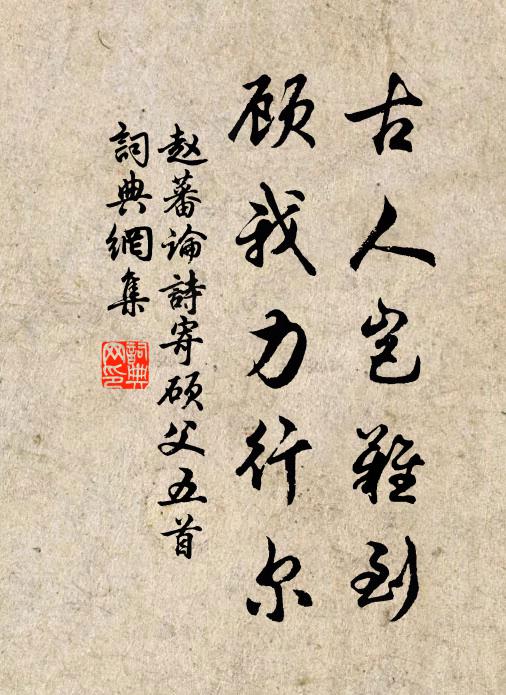 古人岂難到
顾我力行尔
赵蕃論詩寄硕父五首
詞典網集
詞典網印